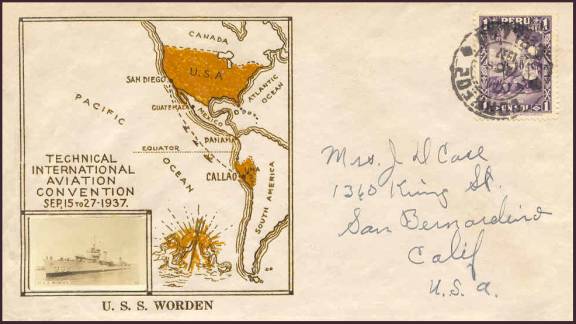 CANADA
U.S.A.
SAN DIEGO
ATLANTIC
OCEAN
PACIFIC
GUATEMALA
MEXICO
PANAMA
EQUATOR
OCEAN
CALLAO
SOUTH AMERICA
TECHNICAL
INTERNATIONAL
AVIATION
CONVENTION
SEP. 15 TO 27-1937.
U. S. S. WORDEN
1 PERÚ 1
1 1
Mrs. J D Case
1360 King St.
San Bernardino
Calif
U.S.A.